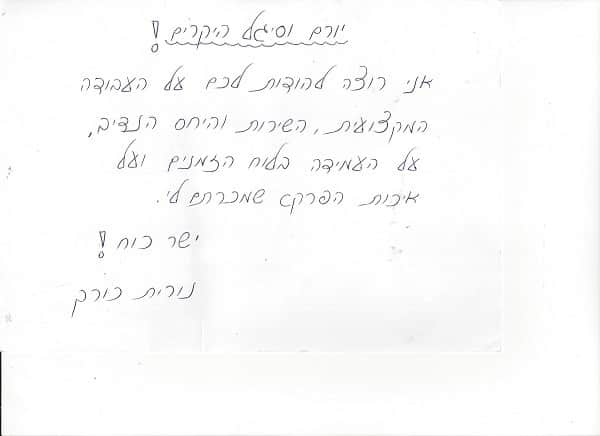 יורם וסיגל היקרים!
אני רוצה להודות לכם על העבודה
המקצועית, השירות והיחס הנדיב,
על העמידה בלוח הזמנים ועל
איכות הפרקט שמכרתם לי.
ישר כוח!
נורית כורך